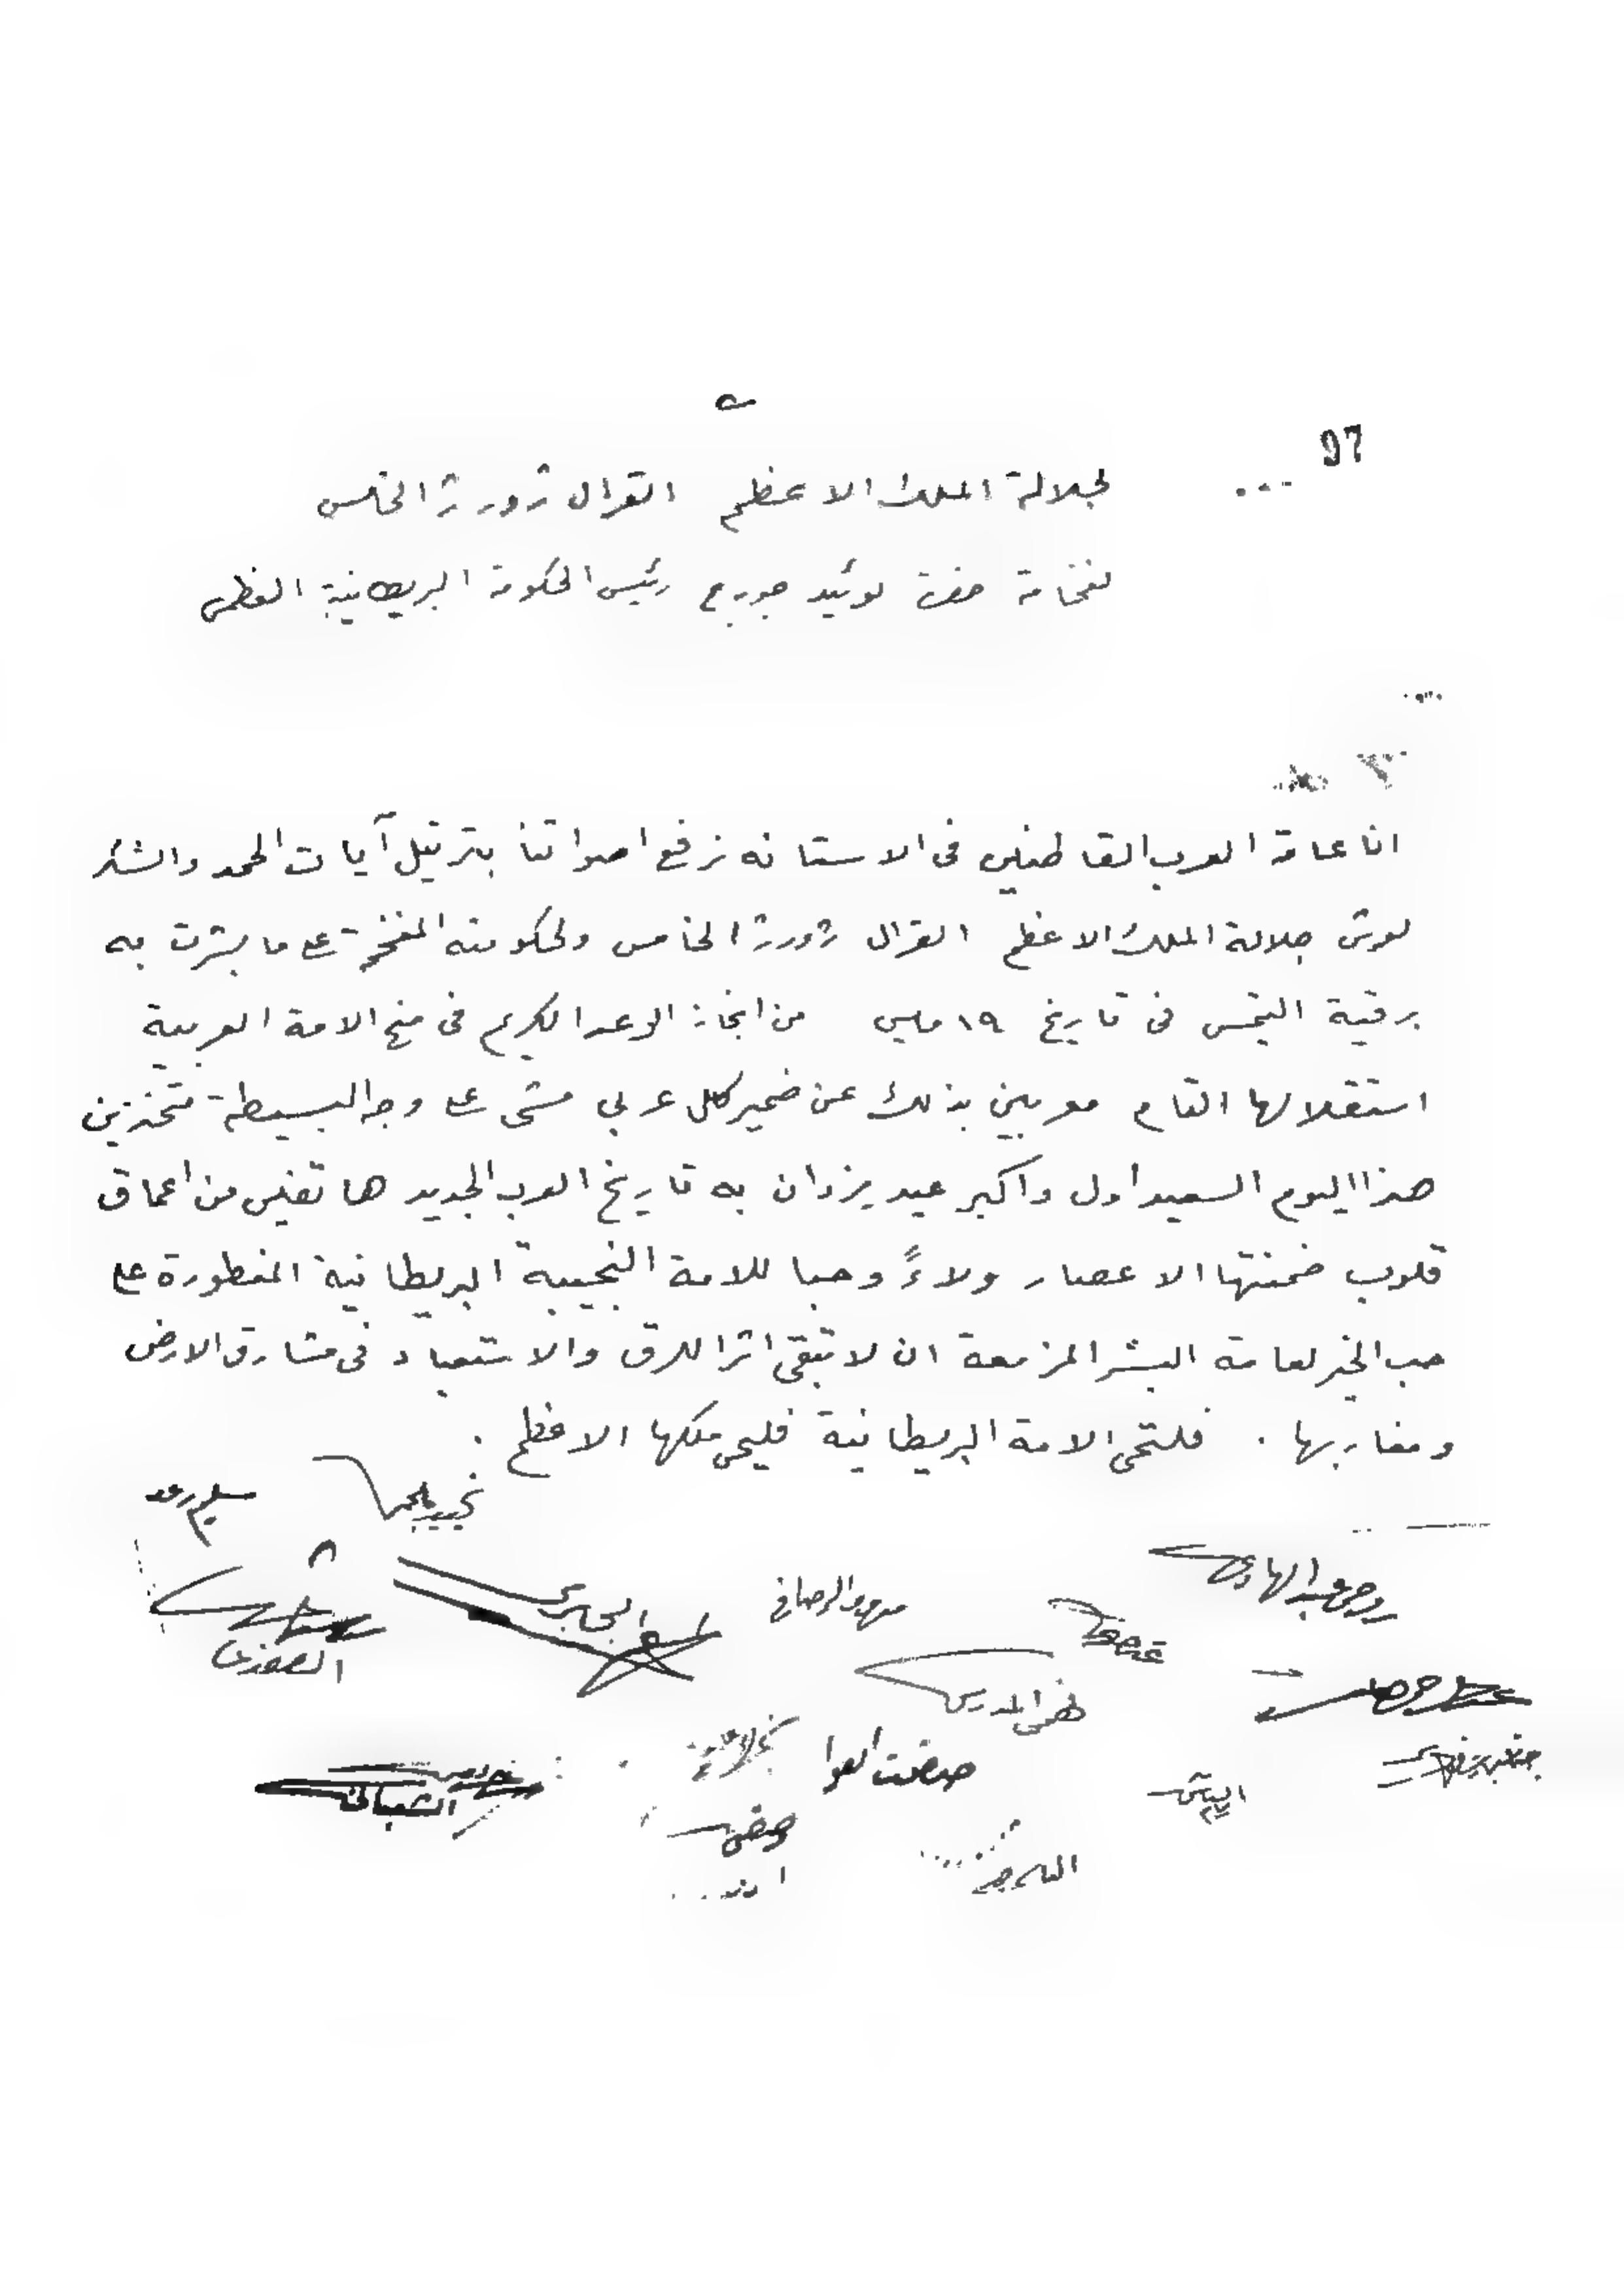 97
لجلالة الملك الاعظم القرال ژورژ الخامس
لفخامة حضرة لوئيد جورج رئيس الحكومة البريطانية العظمى
انا عامة العرب القاطنين فى الاستانه نرفع اصواتنا بترتيل آيات الحمد والشكر
لعرش جلالة الملك الاعظم القرال ژورژ الخامس ولحكومته المفخمة على ما بشرت به
برقية التيمس فى تاريخ ١٩ مايس من انجاز الوعد الكريم فى منح الامة العربية
استقلالها التام معربين بذلك عن ضمير كل عربي مشى على وجه البسيطة متخذين
هذا اليوم السعيد اول واكبر عيد يزدان به تاريخ العرب الجديد هاتفين من اعماق
قلوب ضمنتها الاعصار ولاءً وحبا للامة النجيبة البريطانية المفطورة على
حب الخير لعامة البشر المزمعة ان لا تبقى اثرا للرق والاستعباد فى مشارق الارض
ومغاربها . فلتحى الامة البريطانية فليحى ملكها الاعظم .
سليم
عبد الهادى
معروف الرصافى
الجابرى
فهمى المدرس
صفوت العوا
الشيبانى